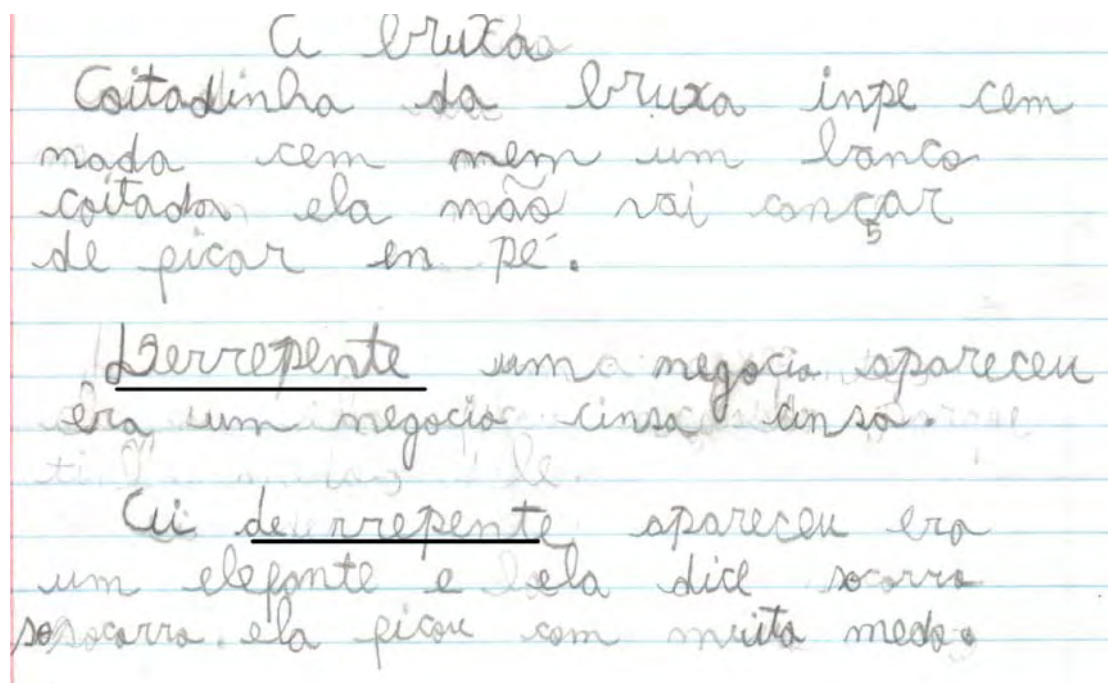 A bruxa
Coitadinha da bruxa inpe cem
nada cem nem um banco
coitada ela não vai cançar
5
de ficar en pé.
Derrepente um negocio apareceu
era um negocio cinsa cinsa.
Ai de rrepente apareceu era
um elefante e ela dice socorro
socorro ela ficou com muito medo.